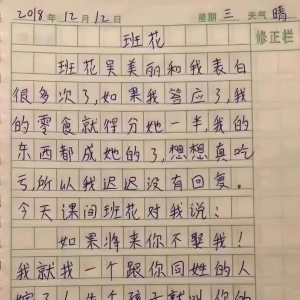 2018年12月12日 星期三 天气晴
修正栏
班花
班花吴美丽和我表白
很多次了,如果我答应了,我
的零食就得分她一半,我的
东西都成她的了,想想真吃
亏,所以我迟迟没有回复。
今天课间班花对我说:
如果将来你不娶我!
我就找一个跟你同姓的人
嫁了!生个孩子就叫你的